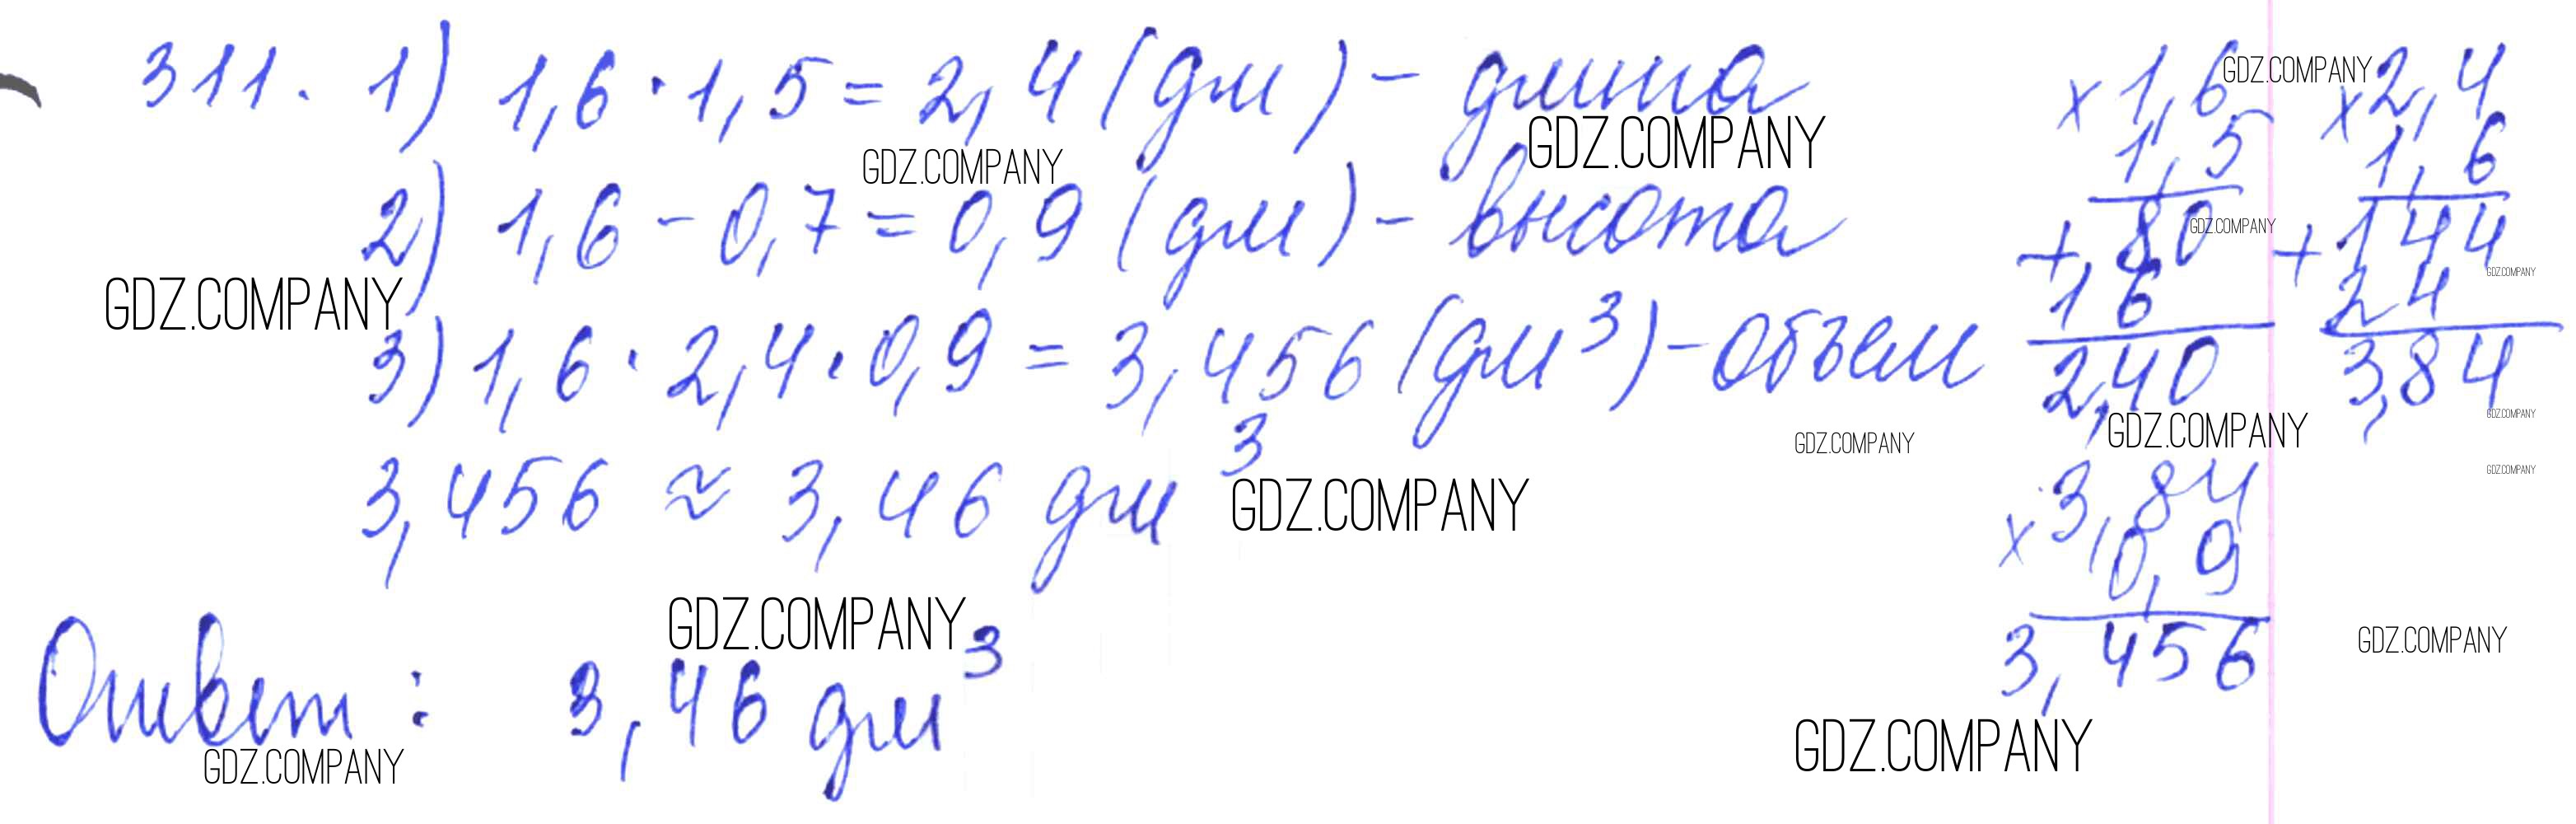 311. 1) 1,6 · 1,5 = 2,4 (дм) – длина
GDZ.COMPANY
GDZ.COMPANY
2) 1,6 – 0,7 = 0,9 (дм) – высота
GDZ.COMPANY
3) 1,6 · 2,4 · 0,9 = 3,456 (дм³) – объем
3,456 ≈ 3,46 дм³
GDZ.COMPANY
GDZ.COMPANY
GDZ.COMPANY
Ответ: 3,46 дм³
GDZ.COMPANY
× 1,6
GDZ.COMPANY
1,5
+ 80
GDZ.COMPANY
16
2,40
GDZ.COMPANY
× 2,4
1,6
+ 144
GDZ.COMPANY
24
3,84
GDZ.COMPANY
GDZ.COMPANY
× 3,84
0,9
3,456
GDZ.COMPANY
GDZ.COMPANY